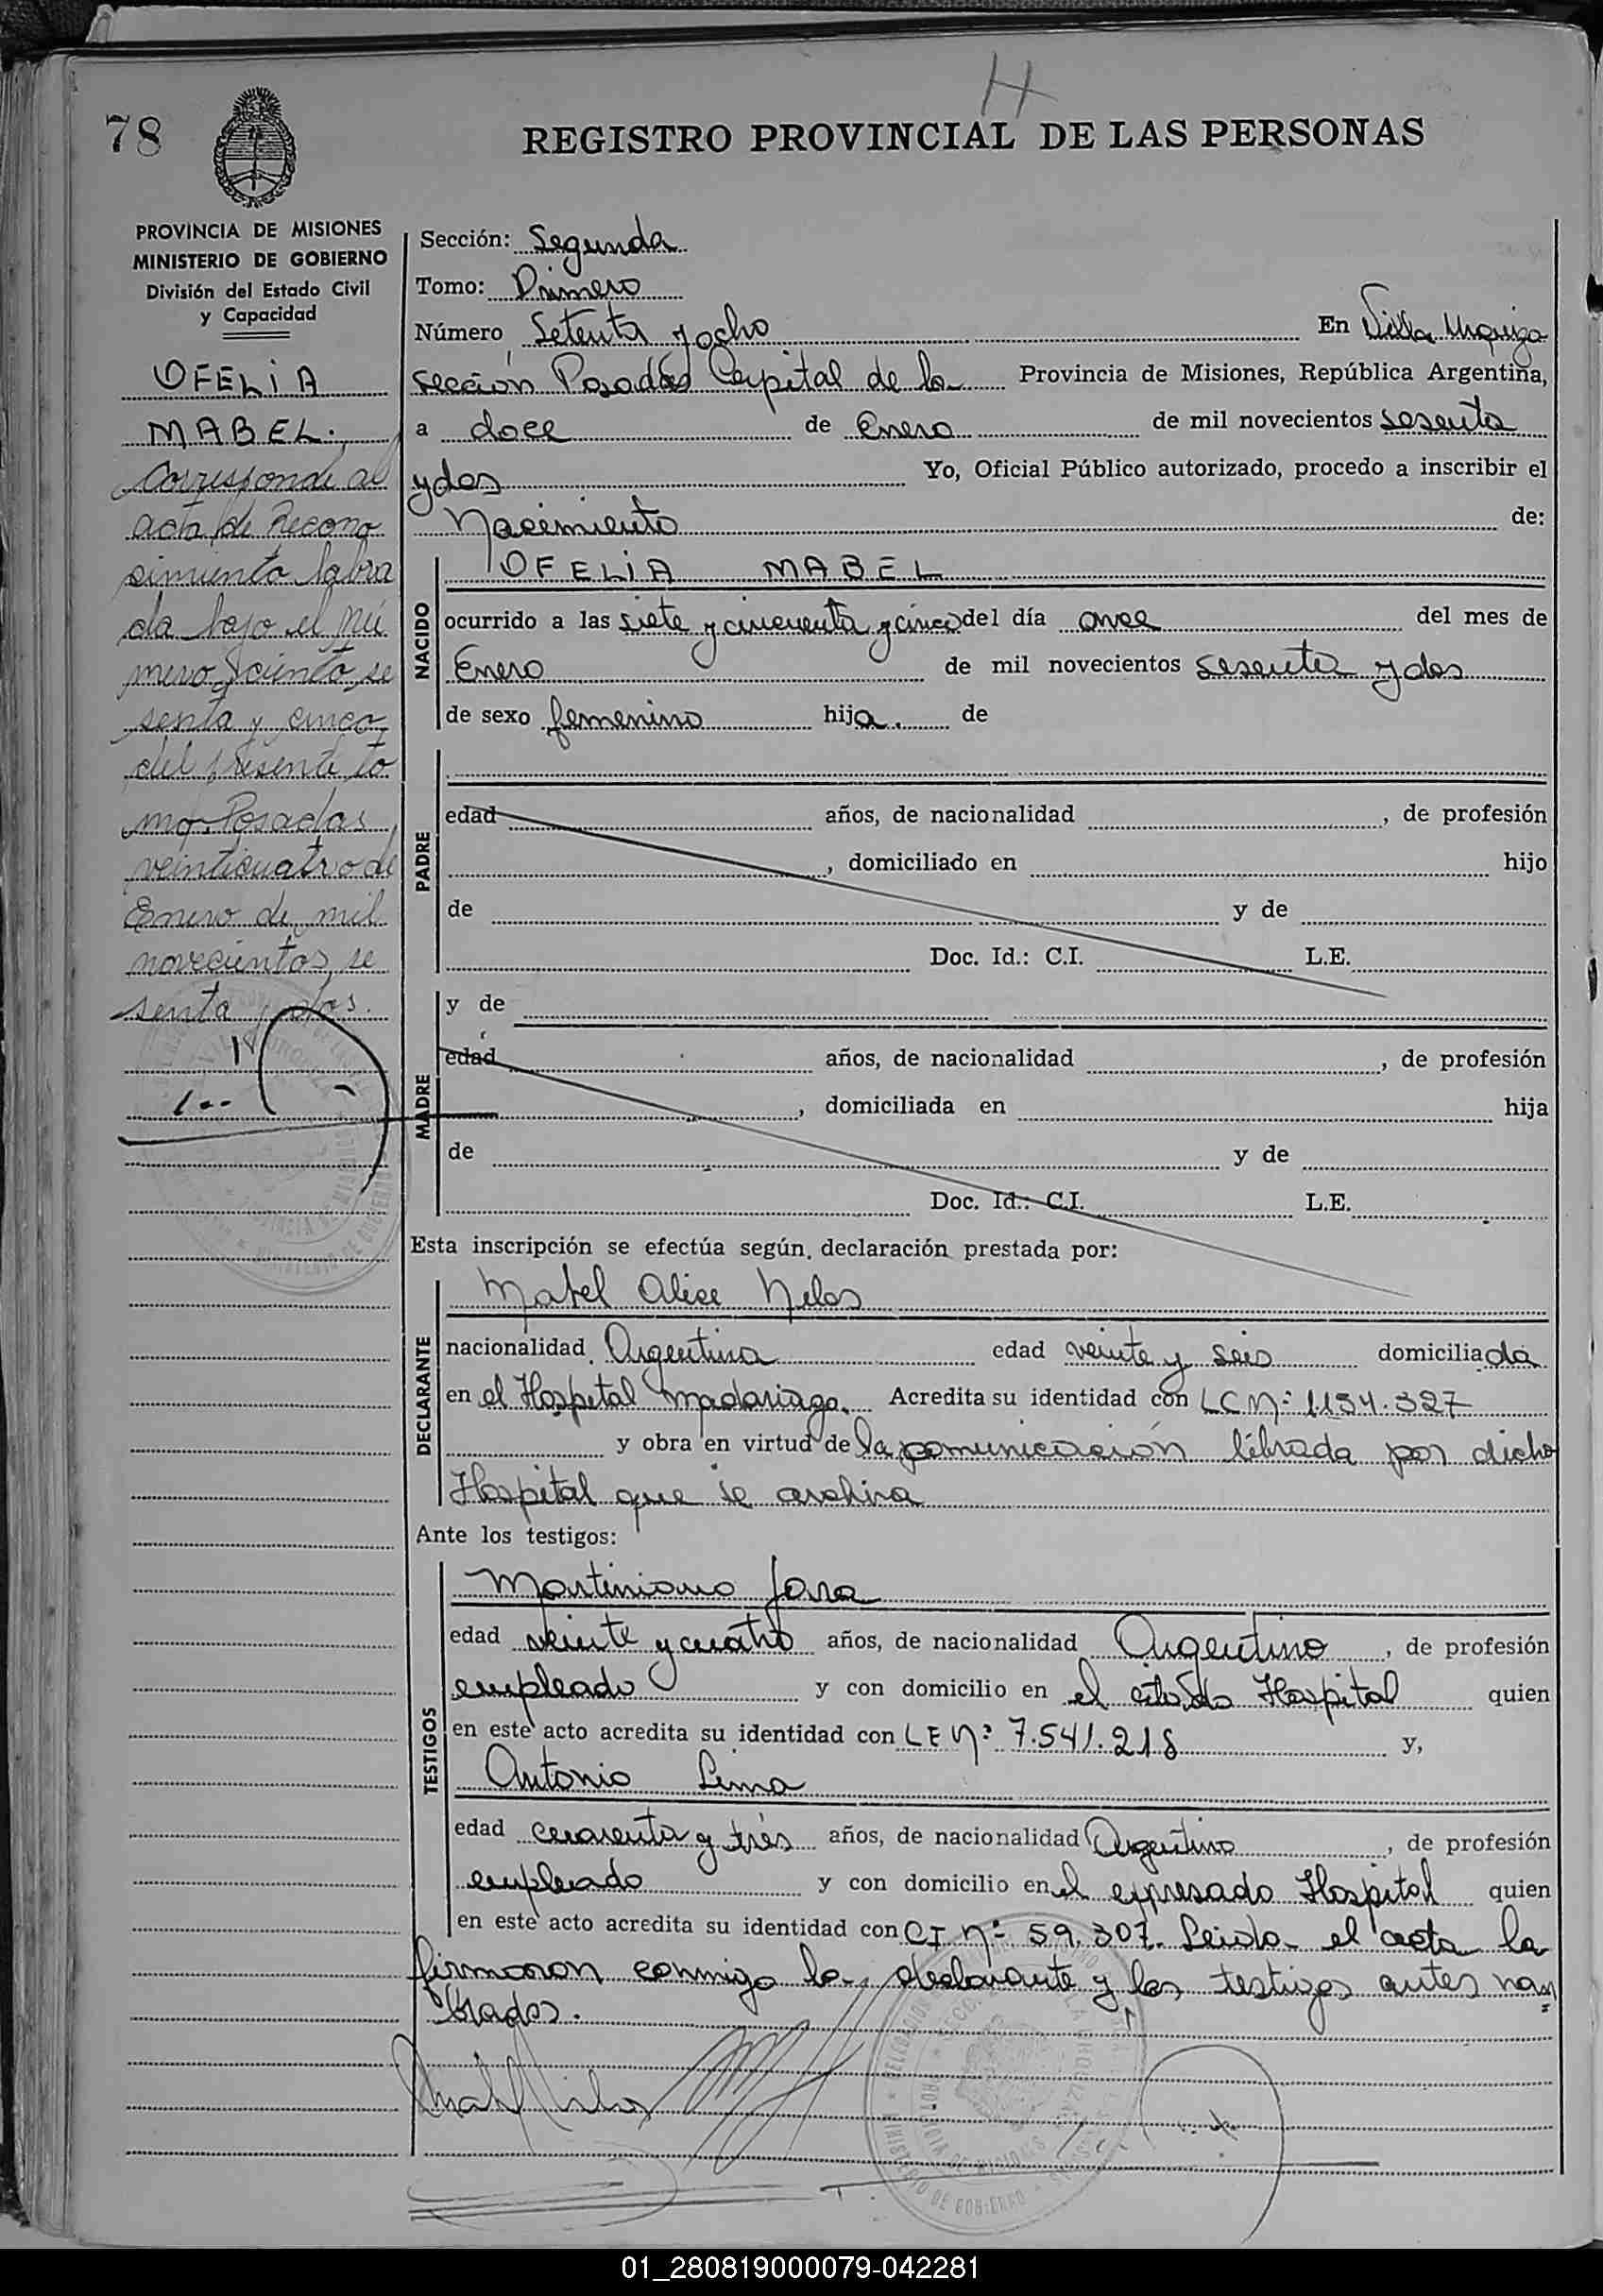 78
H
REGISTRO PROVINCIAL DE LAS PERSONAS
PROVINCIA DE MISIONES
MINISTERIO DE GOBIERNO
División del Estado Civil
y Capacidad
OFELIA
MABEL.
Corresponde al
acta de Recono
cimiento labra
da bajo el nú
mero ciento se
senta y cinco
del presente to
mo. Posadas
veinticuatro de
Enero de mil
novecientos se
senta y dos.
Sección: Segunda
Tomo: Primero
Número Setenta y ocho En Villa Urquiza
sección Posadas Capital de la Provincia de Misiones, República Argentina,
a doce de Enero de mil novecientos sesenta
y dos Yo, Oficial Público autorizado, procedo a inscribir el
Nacimiento de:
NACIDO
OFELIA MABEL
ocurrido a las siete y cincuenta y cinco del día once del mes de
Enero de mil novecientos sesenta y dos
de sexo femenino hija. de
PADRE
edad años, de nacionalidad , de profesión
, domiciliado en hijo
de y de
Doc. Id.: C.I. L.E.
MADRE
y de
edad años, de nacionalidad , de profesión
, domiciliada en hija
de y de
Doc. Id.: C.I. L.E.
Esta inscripción se efectúa según declaración prestada por:
DECLARANTE
Mabel Alice
nacionalidad Argentina edad veinte y seis domiciliada
en el Hospital Madariaga. Acredita su identidad con LC Nº 1.134.327
y obra en virtud de la comunicación librada por dicho
Hospital que se archiva
Ante los testigos:
TESTIGOS
Martiniano Jara
edad veinte y cuatro años, de nacionalidad Argentino , de profesión
empleado y con domicilio en el citado Hospital quien
en este acto acredita su identidad con LE Nº 7.541.218 y,
Antonio Lima
edad cuarenta y tres años, de nacionalidad Argentino , de profesión
empleado y con domicilio en el expresado Hospital quien
en este acto acredita su identidad con CI Nº 59.307. Leida el acta la
firmaron conmigo la declarante y los testigos antes nom
brados.
01_280819000079-042281